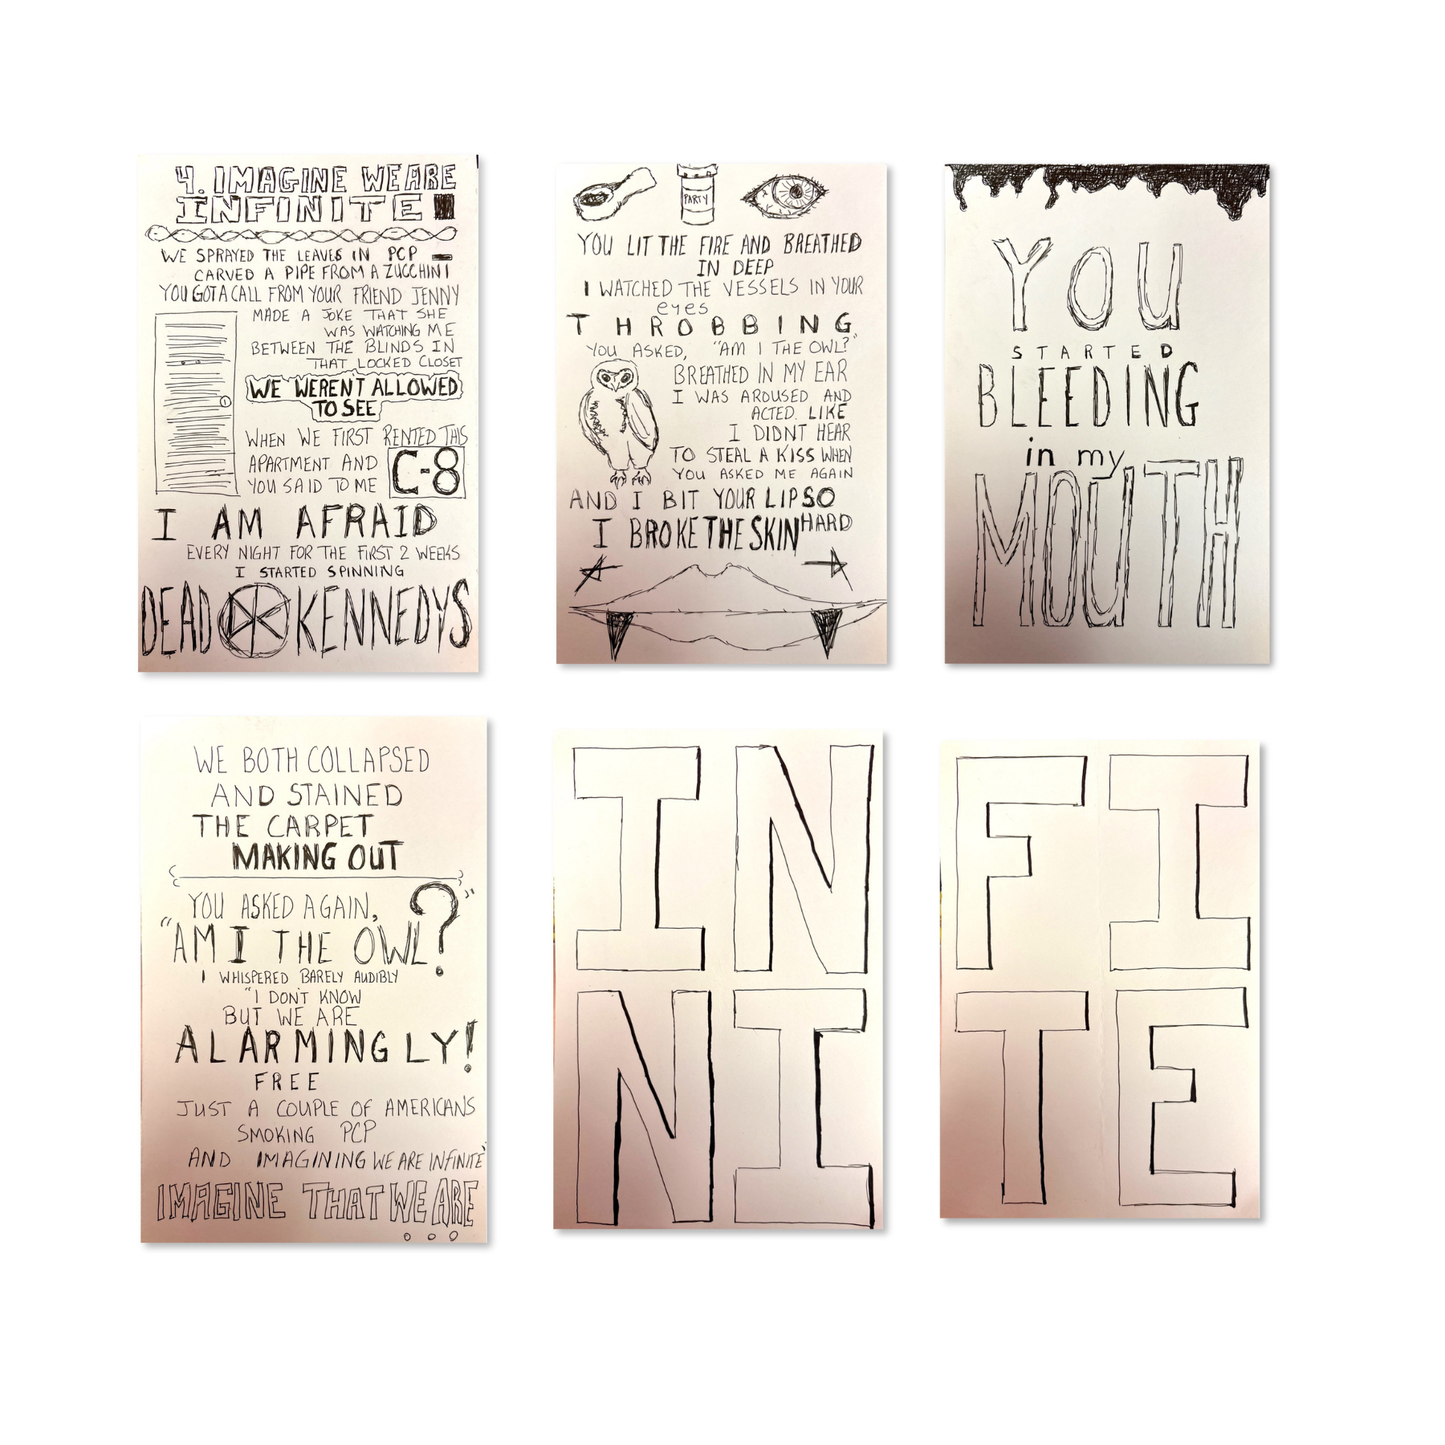 4. IMAGINE WE ARE
INFINITE
WE SPRAYED THE LEAVES IN PCP
CARVED A PIPE FROM A ZUCCHINI
YOU GOT A CALL FROM YOUR FRIEND JENNY
MADE A JOKE THAT SHE
WAS WATCHING ME
BETWEEN THE BLINDS IN
THAT LOCKED CLOSET
WE WEREN'T ALLOWED
TO SEE
WHEN WE FIRST RENTED THIS
APARTMENT AND C-8
YOU SAID TO ME
I AM AFRAID
EVERY NIGHT FOR THE FIRST 2 WEEKS
I STARTED SPINNING
DEAD DK KENNEDYS
PARTY
YOU LIT THE FIRE AND BREATHED
IN DEEP
I WATCHED THE VESSELS IN YOUR
eyes
THROBBING
YOU ASKED, "AM I THE OWL?"
BREATHED IN MY EAR
I WAS AROUSED AND
ACTED. LIKE
I DIDNT HEAR
TO STEAL A KISS WHEN
YOU ASKED ME AGAIN
AND I BIT YOUR LIP SO
I BROKE THE SKIN HARD
YOU
STARTED
BLEEDING
in my
MOUTH
WE BOTH COLLAPSED
AND STAINED
THE CARPET
MAKING OUT
YOU ASKED AGAIN,
"AM I THE OWL?"
I WHISPERED BARELY AUDIBLY
"I DON'T KNOW
BUT WE ARE
ALARMINGLY!
FREE
JUST A COUPLE OF AMERICANS
SMOKING PCP
AND IMAGINING WE ARE INFINITE"
IMAGINE THAT WE ARE
...
IN
NI
FI
TE